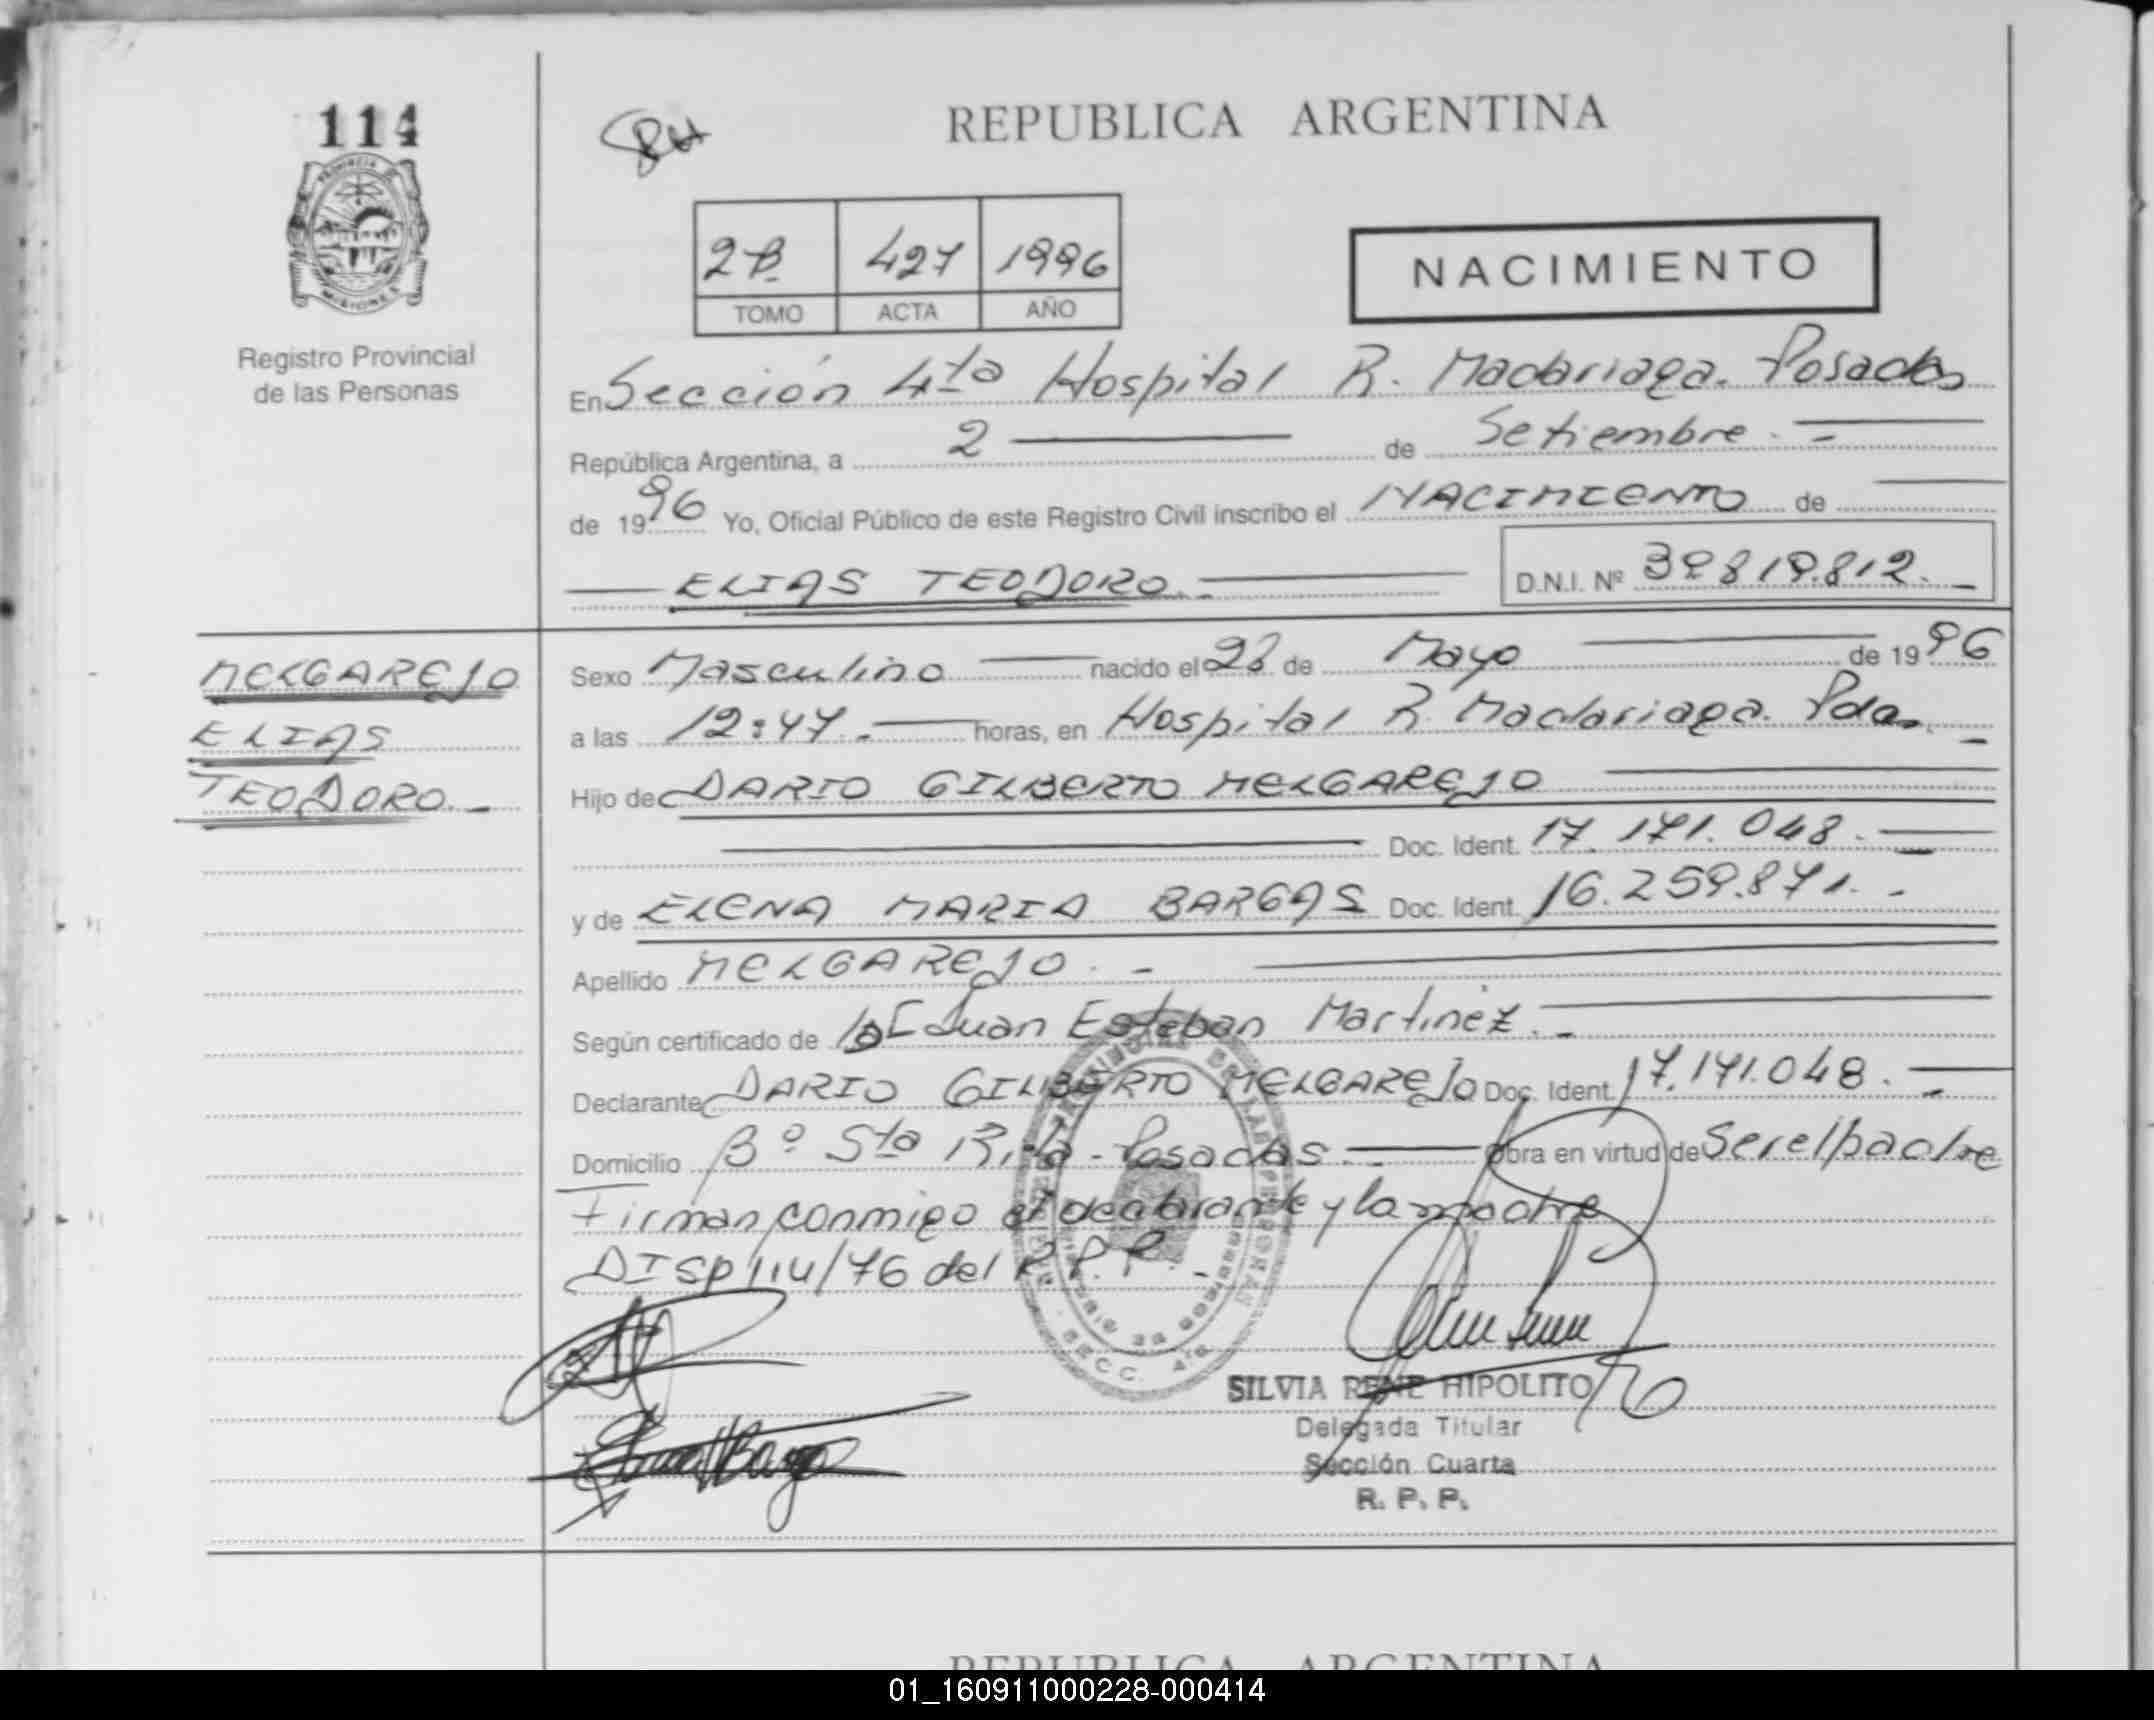 114
REPUBLICA ARGENTINA
PROVINCIA DE
MISIONES
2 B 427 1996
TOMO ACTA AÑO
NACIMIENTO
Registro Provincial
de las Personas
En Sección 4ta Hospital R. Madariaga. Posadas
República Argentina, a 2 de Setiembre
de 1996 Yo, Oficial Público de este Registro Civil inscribo el NACIMIENTO de
ELIAS TEODORO.- D.N.I. Nº 39.819.812.-
MELGAREJO
ELIAS
TEODORO.-
Sexo Masculino nacido el de Mayo de 1996
a las 12:47.- horas, en Hospital R. Madariaga. Pdas.-
Hijo de DARIO GILBERTO MELGAREJO
Doc. Ident. 17.171.048.-
y de ELENA MARIA BARGAS Doc. Ident. 16.259.871.-
Apellido MELGAREJO.-
Según certificado de Juan Esteban Martinez.-
Declarante DARIO GILBERTO MELGAREJO Doc. Ident. 17.171.048.-
Domicilio Bº Sta Rita - Posadas.- obra en virtud de Ser el padre
Firman conmigo el declarante y la madre
DISP 114/76 del R.P.P.-
SECC. 4ta
SILVIA RENE HIPOLITO
Delegada Titular
Sección Cuarta
R. P. P.
REPUBLICA ARGENTINA
01_160911000228-000414